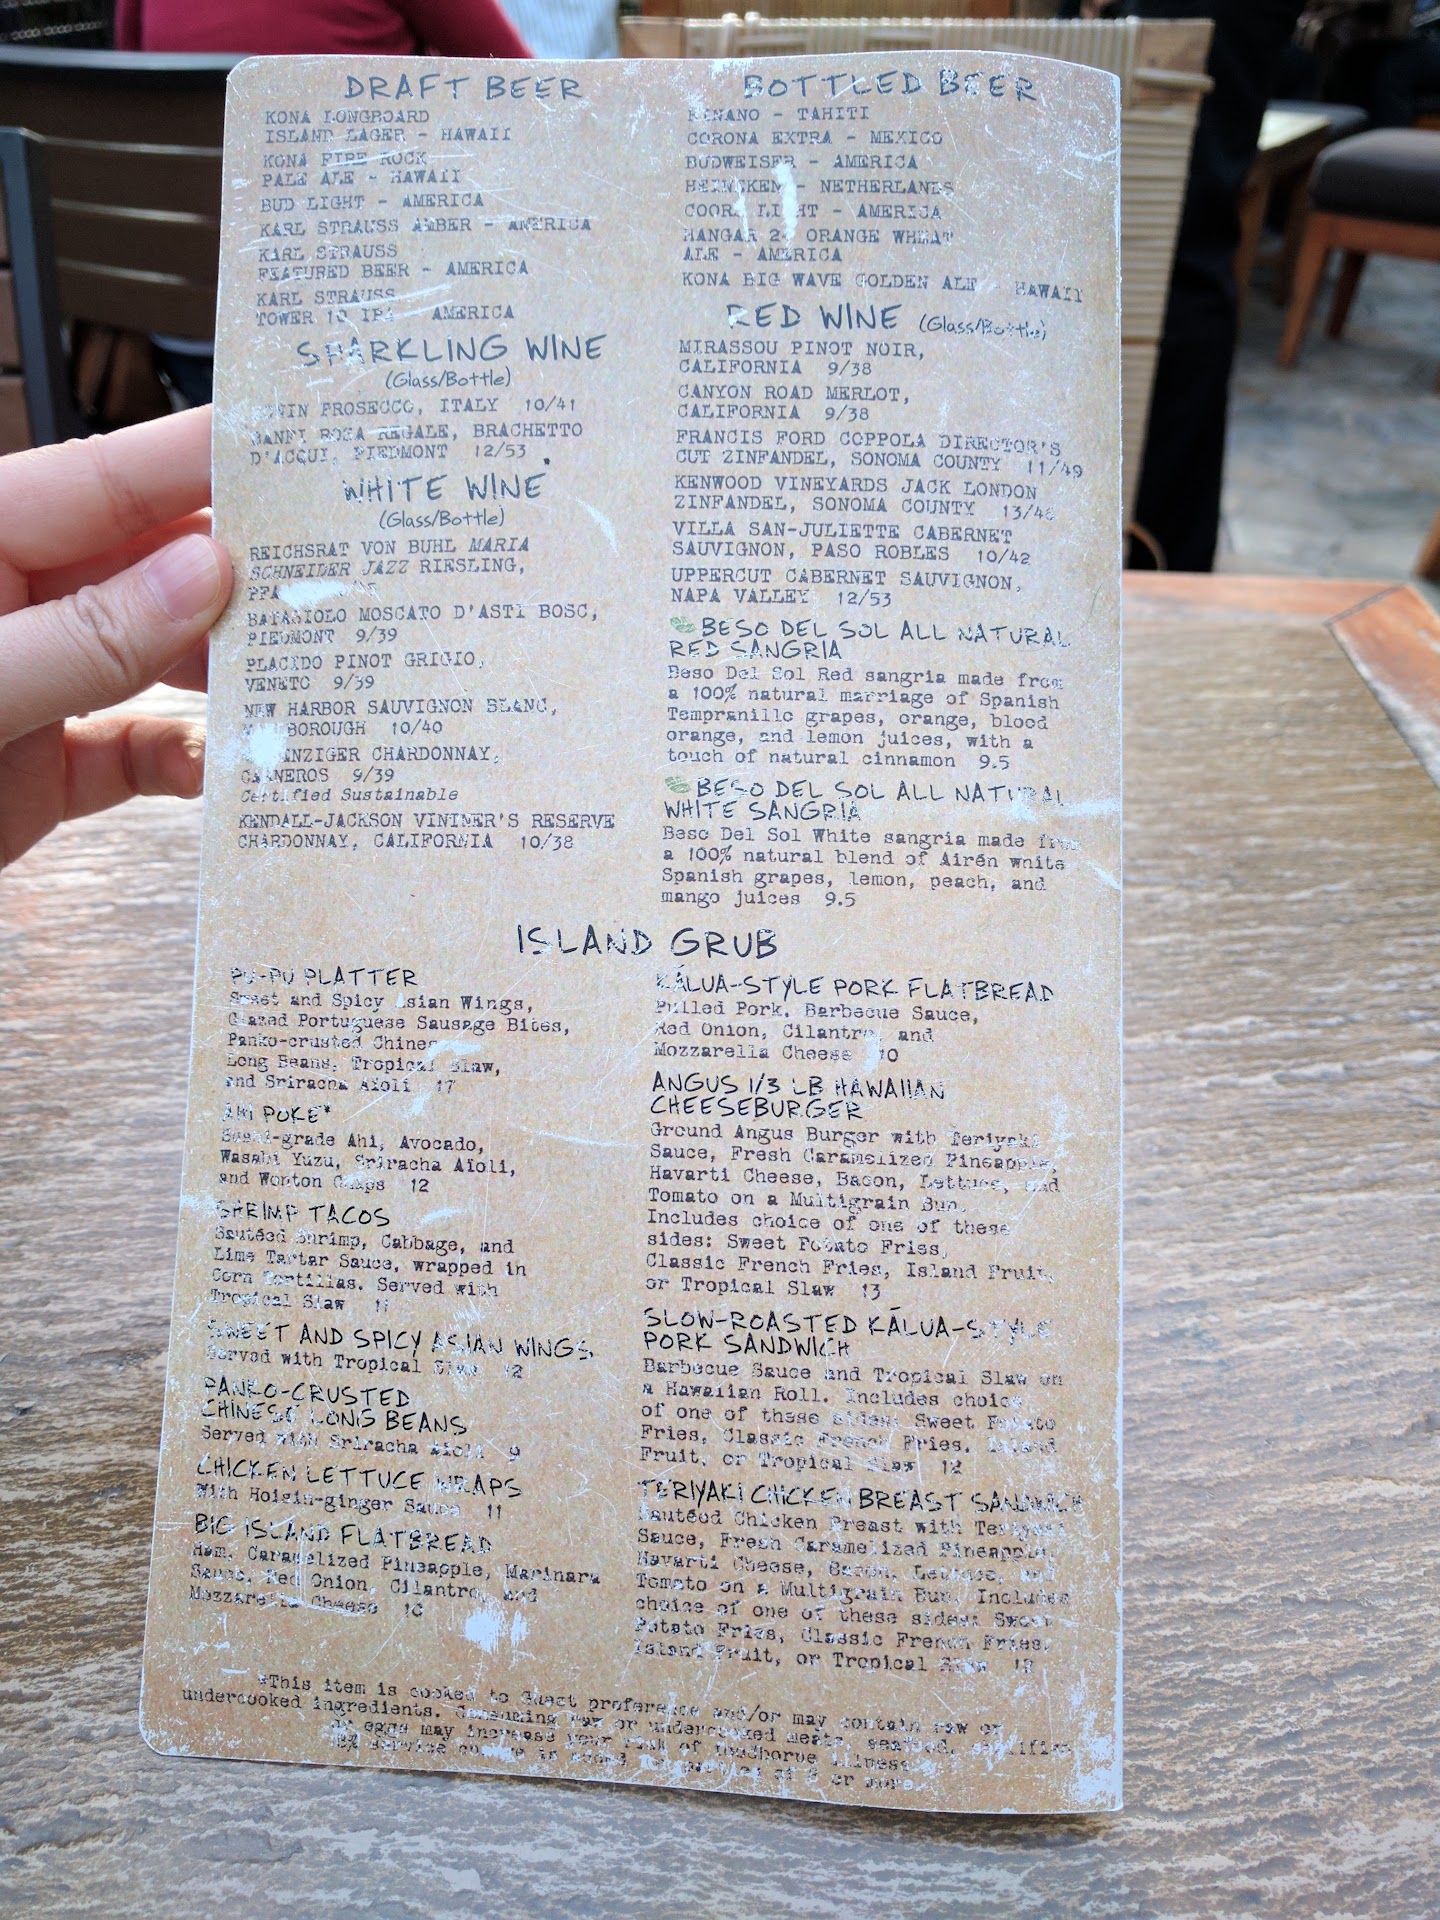 DRAFT BEER
KONA LONGBOARD
ISLAND LAGER - HAWAII
KONA FIRE ROCK
PALE ALE - HAWAII
BUD LIGHT - AMERICA
KARL STRAUSS AMBER - AMERICA
KARL STRAUSS
FEATURED BEER - AMERICA
KARL STRAUSS
TOWER 10 IPA - AMERICA
SPARKLING WINE
(Glass/Bottle)
PROSECCO, ITALY 10/41
BANFI ROSA REGALE, BRACHETTO
D'ACQUI, PIEDMONT 12/53
WHITE WINE
(Glass/Bottle)
REICHSRAT VON BUHL MARIA
SCHNEIDER JAZZ RIESLING,
BATASIOLO MOSCATO D'ASTI BOSC,
PIEDMONT 9/39
PLACIDO PINOT GRIGIO,
VENETO 9/39
NEW HARBOR SAUVIGNON BLANC,
MARLBOROUGH 10/40
CHARDONNAY,
CARNEROS 9/39
Certified Sustainable
KENDALL-JACKSON VINTNER'S RESERVE
CHARDONNAY, CALIFORNIA 10/38
BOTTLED BEER
HINANO - TAHITI
CORONA EXTRA - MEXICO
BUDWEISER - AMERICA
HEINEKEN - NETHERLANDS
COORS LIGHT - AMERICA
HANGAR 24 ORANGE WHEAT
ALE - AMERICA
KONA BIG WAVE GOLDEN ALE - HAWAII
RED WINE (Glass/Bottle)
MIRASSOU PINOT NOIR,
CALIFORNIA 9/38
CANYON ROAD MERLOT,
CALIFORNIA 9/38
FRANCIS FORD COPPOLA DIRECTOR'S
CUT ZINFANDEL, SONOMA COUNTY 11/49
KENWOOD VINEYARDS JACK LONDON
ZINFANDEL, SONOMA COUNTY
VILLA SAN-JULIETTE CABERNET
SAUVIGNON, PASO ROBLES 10/42
UPPERCUT CABERNET SAUVIGNON,
NAPA VALLEY 12/53
BESO DEL SOL ALL NATURAL
RED SANGRIA
Beso Del Sol Red sangria made from
a 100% natural marriage of Spanish
Tempranillo grapes, orange, blood
orange, and lemon juices, with a
touch of natural cinnamon 9.5
BESO DEL SOL ALL NATURAL
WHITE SANGRIA
Beso Del Sol White sangria made from
a 100% natural blend of Airén white
Spanish grapes, lemon, peach, and
mango juices 9.5
ISLAND GRUB
PU-PU PLATTER
Sweet and Spicy Asian Wings,
Glazed Portuguese Sausage Bites,
Panko-crusted Chinese
Long Beans, Tropical Slaw,
and Sriracha Aïoli 17
AHI POKE*
Sushi-grade Ahi, Avocado,
Wasabi Yuzu, Sriracha Aïoli,
and Wonton Chips 12
SHRIMP TACOS
Sautéed Shrimp, Cabbage, and
Lime Tartar Sauce, wrapped in
Corn Tortillas. Served with
Tropical Slaw 11
SWEET AND SPICY ASIAN WINGS
Served with Tropical Slaw 12
PANKO-CRUSTED
CHINESE LONG BEANS
Served with Sriracha Aïoli 9
CHICKEN LETTUCE WRAPS
With Hoisin-ginger Sauce 11
BIG ISLAND FLATBREAD
Ham, Caramelized Pineapple, Marinara
Sauce, Red Onion, Cilantro, and
Mozzarella Cheese 10
KĀLUA-STYLE PORK FLATBREAD
Pulled Pork, Barbecue Sauce,
Red Onion, Cilantro, and
Mozzarella Cheese 10
ANGUS 1/3 LB HAWAIIAN
CHEESEBURGER
Ground Angus Burger with Teriyaki
Sauce, Fresh Caramelized Pineapple,
Havarti Cheese, Bacon, Lettuce, and
Tomato on a Multigrain Bun.
Includes choice of one of these
sides: Sweet Potato Fries,
Classic French Fries, Island Fruit,
or Tropical Slaw 13
SLOW-ROASTED KĀLUA-STYLE
PORK SANDWICH
Barbecue Sauce and Tropical Slaw on
a Hawaiian Roll. Includes choice
of one of these sides: Sweet Potato
Fries, Classic French Fries, Island
Fruit, or Tropical Slaw 12
TERIYAKI CHICKEN BREAST SANDWICH
Sautéed Chicken Breast with Teriyaki
Sauce, Fresh Caramelized Pineapple,
Havarti Cheese, Bacon, Lettuce, and
Tomato on a Multigrain Bun. Includes
choice of one of these sides: Sweet
Potato Fries, Classic French Fries,
Island Fruit, or Tropical Slaw
*This item is cooked to Guest preference and/or may contain raw or
undercooked ingredients. Consuming raw or undercooked meats, seafood, shellfish
or eggs may increase your risk of foodborne illness.
service charge is added for parties of 8 or more.